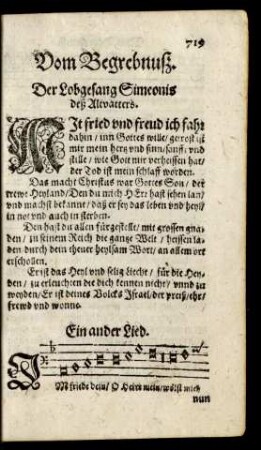 719
Vom Begrebnuß.
Der Lobgesang Simeonis
deß Altvatters.
MIt fried vnd freud ich fahr
dahin / inn Gottes wille / getrost ist
mir mein hertz vnd sinn / sanfft vnd
stille / wie Gott mir verheissen hat /
der Tod ist mein schlaff worden.
Das macht Christus war Gottes Son / der
trewe Heyland / Den du mich HErr hast sehen lan /
vnd machst bekannt / daß er sey das leben vnd heyl /
in not vnd auch in sterben.
Den hast du allen fürgestellt / mit grossen gna-
den / zu seinem Reich die gantze Welt / heissen la-
den / durch dein thewr heylsam Wort / an allem ort
erschollen.
Er ist das Heyl vnd selig Liecht / für die Hey-
den / zu erleuchten die dich kennen nicht / vnnd zu
weyden / Er ist deines Volcks Israel / der preiß / ehr /
frewd vnd wonne.
Ein ander Lied.
IM friede dein / O Herre mein / wölst mich
nun